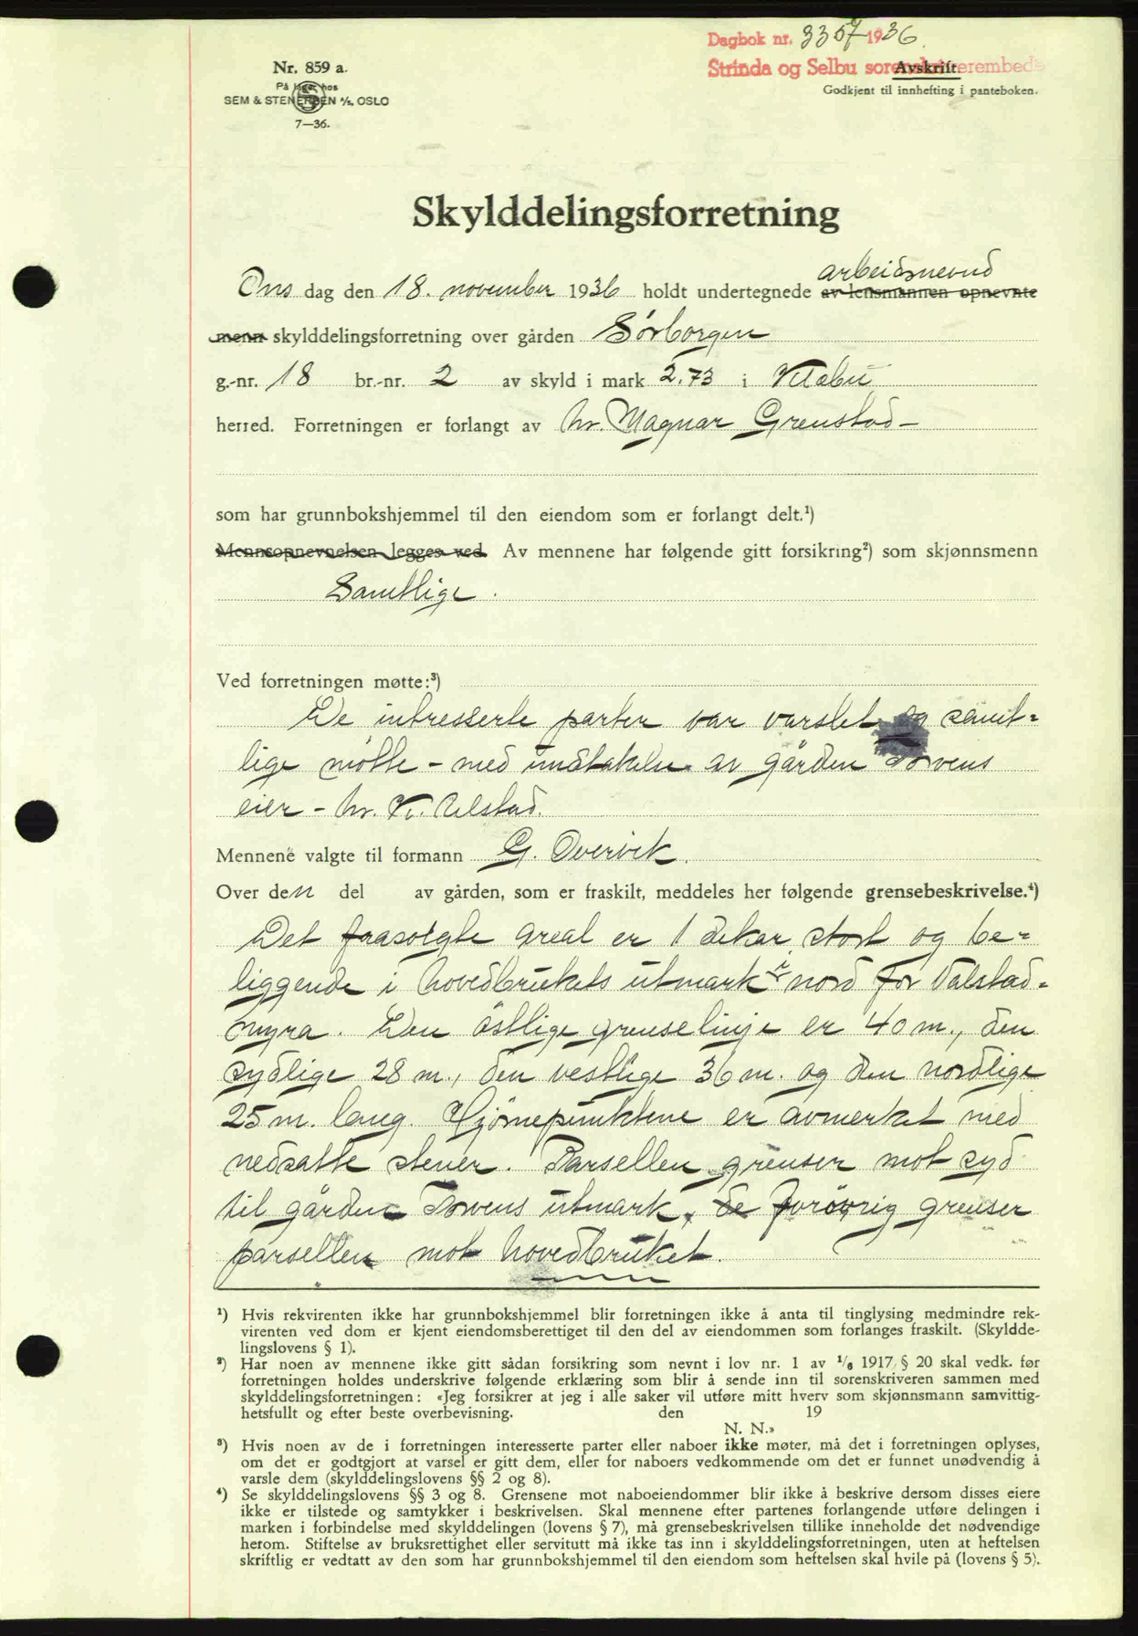 Dagbok nr. 3357 1936
Strinda og Selbu sorenskriverembede
Avskrift
Godkjent til innhefting i panteboken.
Nr. 859 a.
På lager hos
SEM & STENERSEN A/S, OSLO
7—36.
Skylddelingsforretning
arbeidsnevnd
Ons dag den 18. november 1936 holdt undertegnede av lensmannen opnevnte
menn skylddelingsforretning over gården Sørborgen
g.-nr. 18 br.-nr. 2 av skyld i mark 2.73 i Klæbu
herred. Forretningen er forlangt av hr. Magnar Grenstad —
som har grunnbokshjemmel til den eiendom som er forlangt delt.¹)
Mennsopnevnelsen legges ved. Av mennene har følgende gitt forsikring²) som skjønnsmenn
Samtlige.
Ved forretningen møtte:³)
De intresserte parter var varslet og samt-
lige møtte - med undtakelse av gården
eier - hr. K. Ulstad.
Mennene valgte til formann G. Overvik.
Over den del av gården, som er fraskilt, meddeles her følgende grensebeskrivelse.⁴)
Det frasolgte areal er 1 dekar stort og be-
liggende i hovedbrukets utmark nord for Valstad-
myra. Den östlige grenselinje er 40 m., den
sydlige 28 m., den vestlige 36 m. og den nordlige
25 m. lang. Hjörnepunktene er avmerket med
nedsatte stener. Parsellen grenser mot syd
til gården utmark, de forövrig grenser
parsellen mot hovedbruket.
¹) Hvis rekvirenten ikke har grunnbokshjemmel blir forretningen ikke å anta til tinglysing medmindre rek-
virenten ved dom er kjent eiendomsberettiget til den del av eiendommen som forlanges fraskilt. (Skyldde-
lingslovens § 1).
²) Har noen av mennene ikke gitt sådan forsikring som nevnt i lov nr. 1 av 1/6 1917 § 20 skal vedk. før
forretningen holdes underskrive følgende erklæring som blir å sende inn til sorenskriveren sammen med
skylddelingsforretningen: «Jeg forsikrer at jeg i alle saker vil utføre mitt hverv som skjønnsmann samvittig-
hetsfullt og efter beste overbevisning. den 19
N. N.»
³) Hvis noen av de i forretningen interesserte parter eller naboer ikke møter, må det i forretningen oplyses,
om det er godtgjort at varsel er gitt dem, eller for naboers vedkommende om det er funnet unødvendig å
varsle dem (skylddelingslovens §§ 2 og 8).
⁴) Se skylddelingslovens §§ 3 og 8. Grensene mot naboeiendommer blir ikke å beskrive dersom disses eiere
ikke er tilstede og samtykker i beskrivelsen. Skal mennene efter partenes forlangende utføre delingen i
marken i forbindelse med skylddelingen (lovens § 7), må grensebeskrivelsen tillike inneholde det nødvendige
herom. Stiftelse av bruksrettighet eller servitutt må ikke tas inn i skylddelingsforretningen, uten at heftelsen
skriftlig er vedtatt av den som har grunnbokshjemmel til den eiendom som heftelsen skal hvile på (lovens § 5).